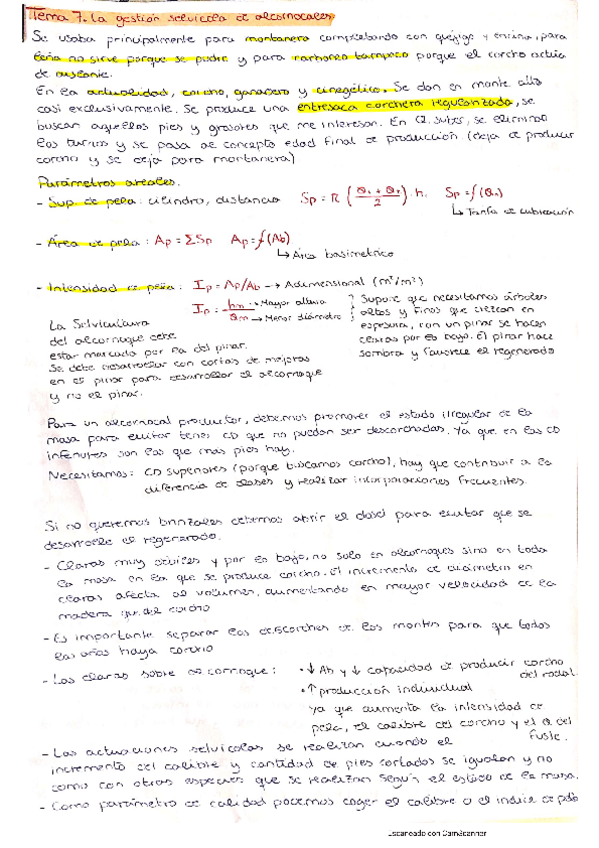 Tema 7. La gestión selvícola de alcornocales
Se usaba principalmente para montanera completando con quejigo y encina, para
leña no sirve porque se pudre y para carboneo tampoco porque el corcho actúa
de aislante.
En la actualidad, corcho, ganadero y cinegético. Se dan en monte alto
casi exclusivamente. Se produce una entresaca corchera regularizada, se
buscan aquellos pies y grosores que me interesan. En se eliminan
los turnos y se pasa al concepto edad final de producción (deja de producir
corcho y se deja para montanera)
Parámetros areales.
- Sup. de pela: cilindro, distancia Sp = π ( + / 2 ) · h. Sp = f( )
↳ Tarifa de cubicación
- Área de pela: Ap = ΣSp Ap = f(Ab)
↳ Área basimétrica
- Intensidad de pela: Ip = Ap/Ab → Adimensional (m²/m²)
Ip = hm → Mayor altura
→ Menor diámetro
Supone que necesitamos árboles
altos y finos que crezcan en
espesura, con un pinar se hacen
claras por lo bajo. El pinar hace
sombra y favorece el regenerado
La Selvicultura
del alcornoque debe
estar marcada por la del pinar.
Se debe desarrollar con cortas de mejoras
en el pinar para desarrollar el alcornoque
y no el pinar.
Para un alcornocal productor, debemos promover el estado irregular de la
masa para evitar tener CD que no puedan ser descorchadas. Ya que en las CD
inferiores son las que más pies hay.
Necesitamos: CD superiores (porque buscamos corcho), hay que contribuir a la
diferencia de clases y realizar incorporaciones frecuentes.
Si no queremos brinzales debemos abrir el dosel para evitar que se
desarrolle el regenerado.
- Claras muy débiles y por lo bajo, no solo en alcornoques sino en toda
la masa en la que se produce corcho. El incremento de diámetro en
claras afecta al volumen, aumentando en mayor velocidad el de la
madera que del corcho
- Es importante separar los descorches de los montes para que todos
los años haya corcho
- Las claras sobre alcornoque: • ↓ Ab y ↓ capacidad de producir corcho
del rodal.
• ↑ producción individual
ya que aumenta la intensidad de
pela, el calibre del corcho y el Ø del
fuste.
- Las actuaciones selvícolas se realizan cuando el
incremento del calibre y cantidad de pies cortados se igualan y no
como con otras especies que se realizan según el estado de la masa.
- Como parámetro de calidad podemos coger el calibre o el índice de
Escaneado con CamScanner